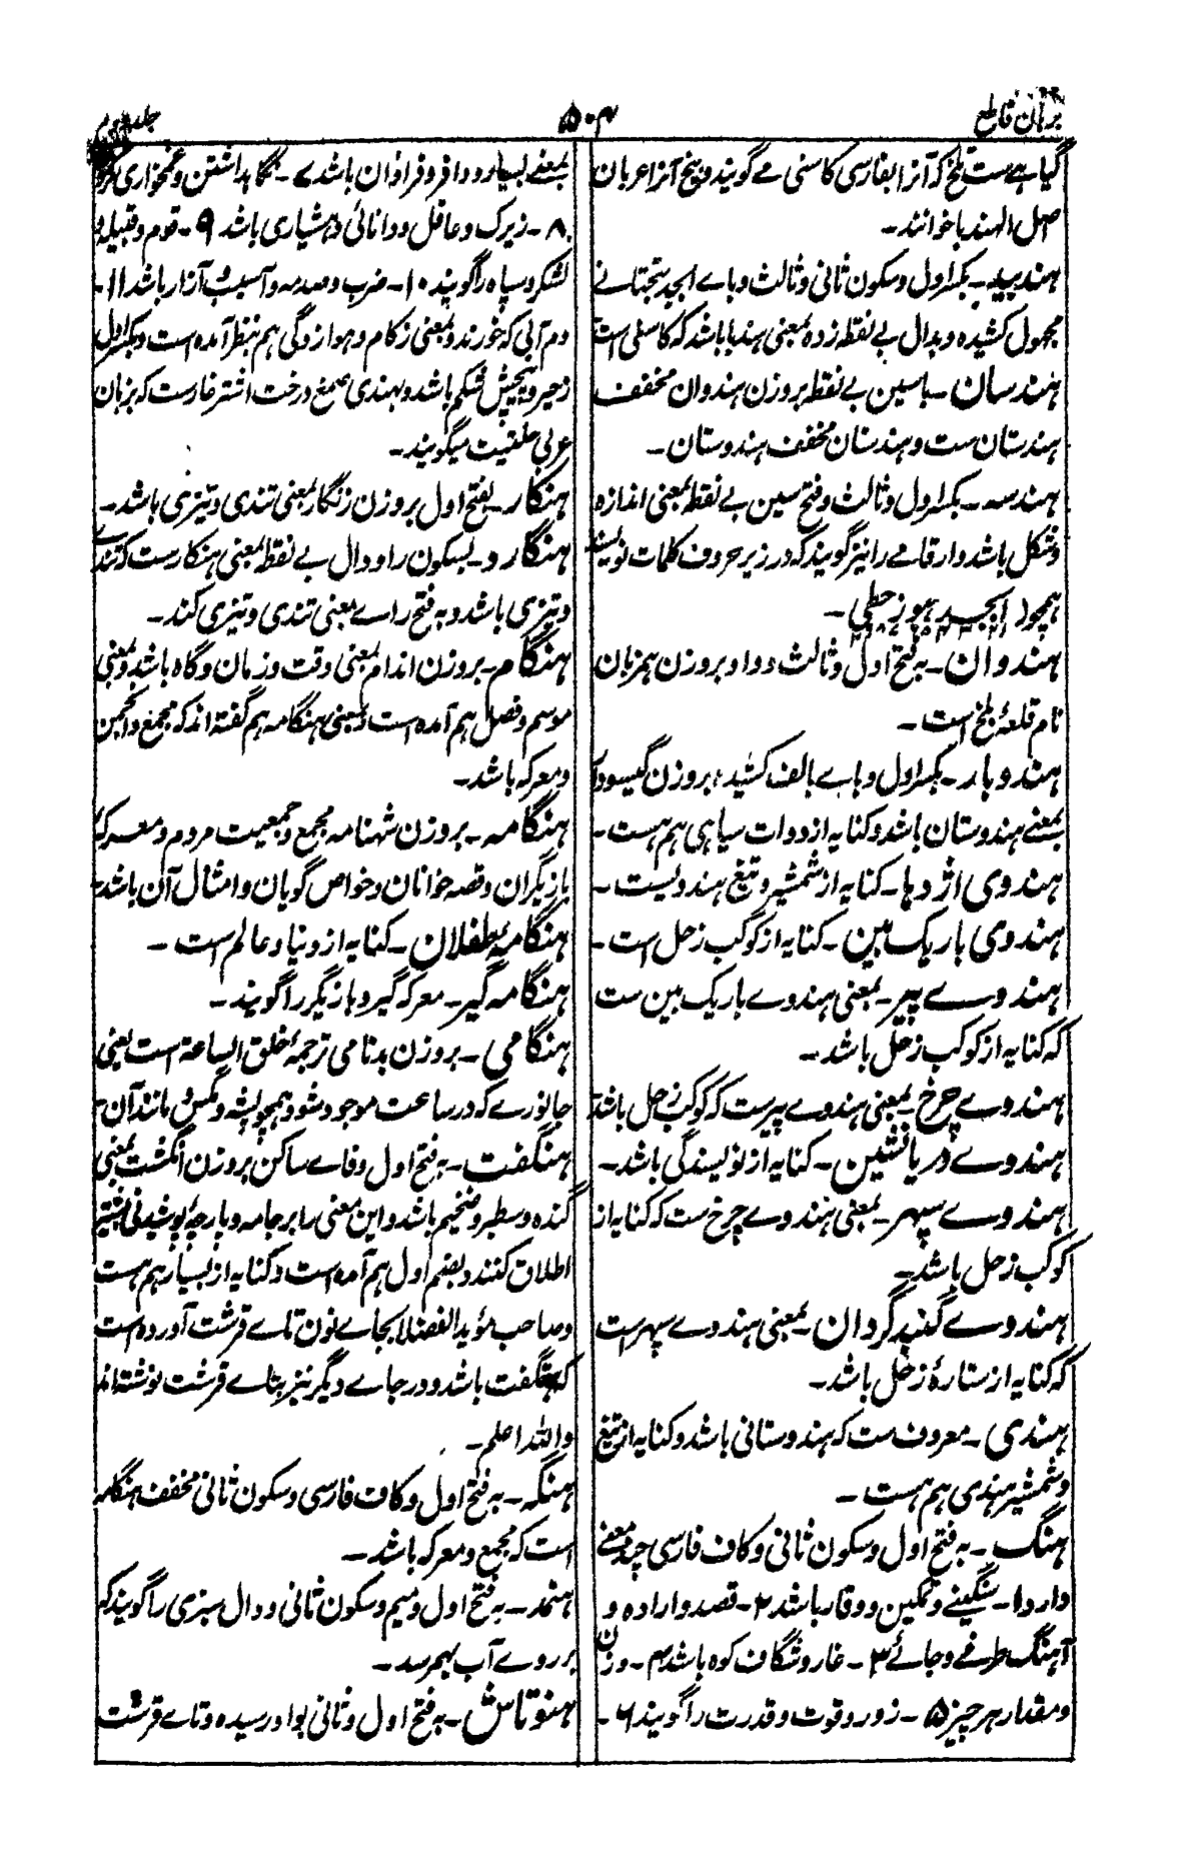 برہان قاطع
۵۰۴
جلد
گیاہے ست تلخ کہ آنرا بفارسی کاسنی مے گویند و بیخ آنرا عربان
اصل الهندبا خوانند۔
ہندبید۔ بکسر اول و سکون ثانی و ثالث و باے ابجد بتحتانے
مجہول کشیدہ و بدال بے نقطہ زدہ بمعنی ہندبا باشد کہ کاسنی است
ہندسان۔ باسین بے نقطہ بروزن ہندوان مخفف
ہندستان ست و ہندستان مخفف ہندوستان۔
ہندسہ۔ بکسر اول و ثالث و فتح سین بے نقطہ بمعنی اندازہ
و شکل باشد و ارقامے را نیز گویند کہ در زیر حروف کلمات نویسند
ہمچو ابجد ہوز حطی۔
ہندوان۔ بہ فتح اول و ثالث و واو بروزن ہمزبان
نام قلعۂ بلخ است۔
ہندوبار۔ بکسر اول و باے بالف کشیدہ بروزن گیسودار
بمعنے ہندوستان باشد و کنایہ از دوات سیاہی ہم ہست۔
ہندوی اژدہا۔ کنایہ از شمشیر و تیغ ہندویست۔
ہندوی باریک بین۔ کنایہ از کوکب زحل است۔
ہندوے پیر۔ بمعنی ہندوے باریک بین ست
کہ کنایہ از کوکب زحل باشد۔
ہندوے چرخ۔ بمعنی ہندوے پیرست کہ کوکب زحل باشد
ہندوے دریانشین۔ کنایہ از نویسندگی باشد۔
ہندوے سپہر۔ بمعنی ہندوے چرخ ست کہ کنایہ از
کوکب زحل باشد۔
ہندوے گنبد گردان۔ بمعنی ہندوے سپہرست
کہ کنایہ از ستارۂ زحل باشد۔
ہندی۔ معروف ست کہ ہندوستانی باشد و کنایہ از تیغ
و شمشیر ہندی ہم ہست۔
ہنگ۔ بہ فتح اول و سکون ثانی و کاف فارسی چند معنے
دارد ۱۔ سنگینے و تمکین و وقار باشد ۲۔ قصد و ارادہ و
آہنگ طرفے و جائے ۳۔ غار و شگاف کوہ باشد ۴۔ وزن
و مقدار ہر چیز ۵۔ زور و قوت و قدرت را گویند ۶۔
بمعنے بسیار و وافر و فراوان باشد ۷۔ نگاہداشتن و غمخواری
۸۔ زیرک و عاقل و دانائی و ہشیاری باشد ۹۔ قوم و قبیلہ و
لشکر و سپاہ را گویند ۱۰۔ ضرب و صدمہ و آسیب و آزار باشد ۱۱۔
دم آبی کہ خورند و بمعنی زکام و ہوازدگی ہم بنظر آمدہ است و بکسر اول
زحیر و پیچش شکم باشد و بہندی صمغ درخت اشترغارست کہ بزبان
عربی حلتیت میگویند۔
ہنگار۔ بفتح اول بروزن زنگار بمعنی تندی و تیزی باشد۔
ہنگارد۔ بسکون را و دال بے نقطہ بمعنی ہنگارست کہ تندے
و تیزی باشد و بہ فتح راے بمعنی تندی و تیزی کند۔
ہنگام۔ بروزن اندام بمعنی وقت و زمان و گاہ باشد و بمعنی
موسم و فصل ہم آمدہ است و بمعنی ہنگامہ ہم گفتہ اند کہ مجمع و انجمن
و معرکہ باشد۔
ہنگامہ۔ بروزن شہنامہ مجمع و جمعیت مردم و معرکہ
بازیگران و قصہ خوانان و خواص گویان و امثال آن باشد۔
ہنگامۂ طفلان۔ کنایہ از دنیا و عالم است۔
ہنگامہ گیر۔ معرکہ گیر و بازیگر را گویند۔
ہنگامی۔ بروزن بدنامی ترجمۂ خلق الساعة است یعنی
جانورے کہ در ساعت موجود شود ہمچو پشہ و مگس و مانند آن۔
ہنگفت۔ بہ فتح اول و فاے ساکن بروزن انگشت بمعنی
گندہ و سطبر و ضخیم باشد و این معنی را بر جامہ و پارچۂ پوشیدنی بیشتر
اطلاق کنند و بضم اول ہم آمدہ است و کنایہ از بسیار ہم ہست
و صاحب مؤید الفضلا بجاے نون تاے قرشت آوردہ است
کہ ہتگفت باشد و در جاے دیگر نیز بتاے قرشت نوشتہ اند
واللہ اعلم۔
ہنگہ۔ بہ فتح اول و کاف فارسی و سکون ثانی مخفف ہنگامہ
است کہ مجمع و معرکہ باشد۔
ہنمد۔ بہ فتح اول و میم و سکون ثانی و دال سبزی را گویند کہ
بر روے آب بہمرسد۔
ہنوتاش۔ بہ فتح اول و ثانی بواو رسیدہ و تاے قرشت